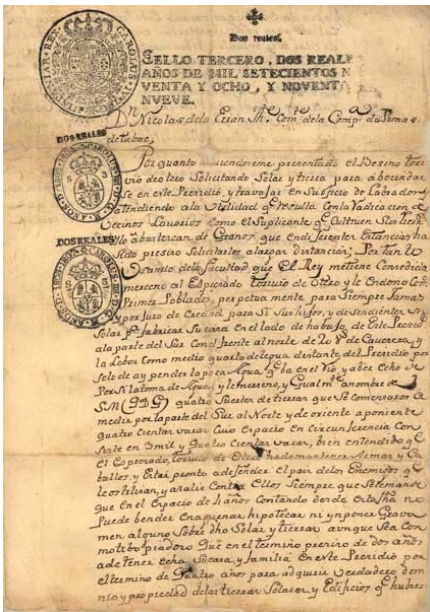 Dos reales.
SELLO TERCERO, DOS REALES
AÑOS DE MIL SETECIENTOS N
VENTA Y OCHO, Y NOVENTA
NUEVE.
CAROLUS
REX
Dn Nicolas de la Eran The. Comte. de la Compa. de Pimas
de tubac,
DOS REALES
Por quanto haviendoseme presentado el Besino tori
vio de otero Solicitando Solar y tierra para abecindar
se en este Presidio, y travajar en Su oficio de Labrador,
atendiendo ala Utilidad qe. resulta con la Radicacion de
Vecinos como el Suplicante qe. Cultiven Sus tierras
y lo abastescan de Granos que en diferentes Estancias ha
DOS REALES
sido presiso Solicitarles a largas distancias; Por tanto
Usando de la facultad que El Rey me tiene Concedida
merceno al Espresado toribio de Otero y le Endono Como
Primer Poblador, perpetua mente para Siempre Jamas
y por Juro de Eredad para Si Sus hijos, y desendientes un
Solar pa. fabricar Su casa en el lado de habajo de Este Presidio
ala parte del Sur con el frente al norte de 20 Vs. de
la Labor como medio quarto de legua distante del Presidio por
solo de ay pender la poca Agua qe. ba en el Rio, y aber echo de
Por Si la toma de Agua, y le merceno, y Igualmte. a nombre de
S M (Q D G) quatro Suertes de tierras que Se comensaron a
medir por la parte del Sur al Norte y de oriente a poniente
quatro Cientas varas Cuio Espacio en Circunferencia Con
siste en 3 mil y Cientas varas, bien entendido qe.
El Espresado, toribio de Otero ha de mantener Armas y Ca
ballos y Estar pronto a defender el pais de los Enemigos qe.
le ostilisan, y a salir Contra Ellos Siempre que Se le mande
que En el Espacio de 4 años Contando desde Esta fha no
Puede bender Enagenar, hipotecar ni ynponer Grava
men alguno Sobre dho Solar y tierras aunque Sea con
motibo piadoso Que en el termino presiso de dos años
a de tener echa Su casa, y familia En este Presidio por
el termino de quatro años para adquirir verdadero domi
nio y propiedad de las tierras Solares y Edificios qe. hubie